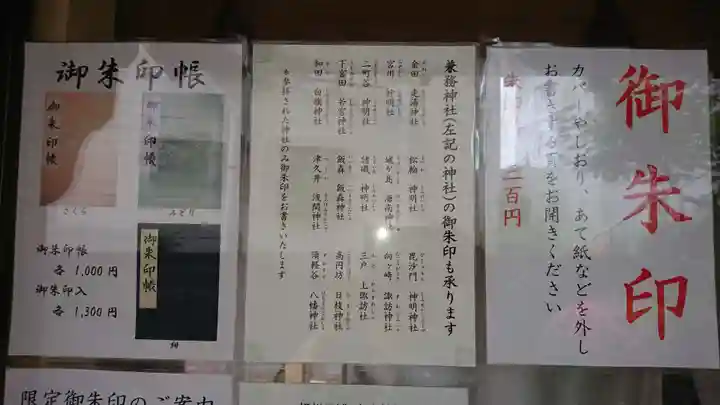 御朱印帳
御朱印帳
御朱印帳
さくら
みどり
御朱印帳
御朱印帳
各 1,000 円
御朱印入
各 1,300 円
紺
兼務神社(左記の神社)の御朱印も承ります
金田 走湯神社
松輪 神明社
毘沙門 神明神社
宮川 神明社
城ヶ島 海南神社
向ヶ崎 諏訪神社
二町谷 神明社
諸磯 神明社
三戸 上諏訪社
下宮田 若宮神社
飯森 飯森神社
高円坊 日枝神社
和田 白旗神社
津久井 浅間神社
須軽谷 八幡神社
※参拝された神社のみ御朱印をお書きいたします
御朱印
カバーやしおり、あて紙などを外し
お書きする頁をお開きください
百円
限定御朱印のご案内